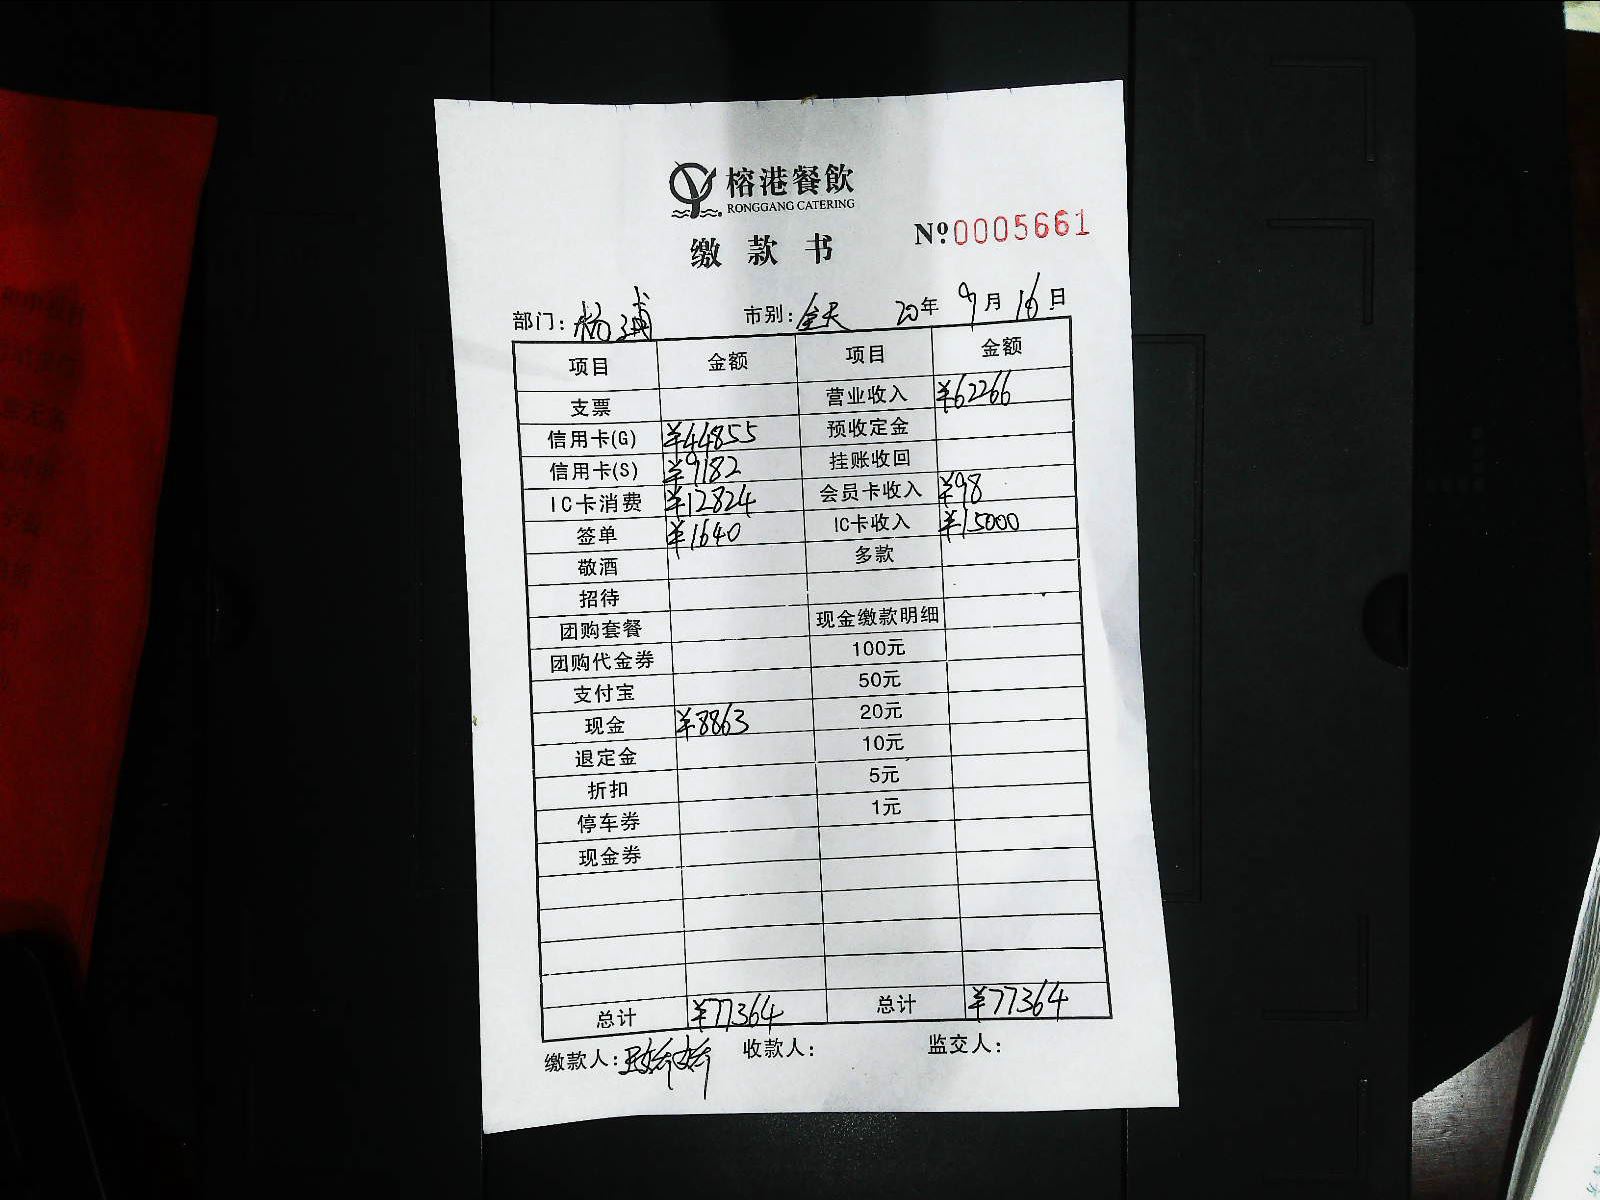 榕港餐飲
RONGGANG CATERING
缴款书
Nº0005661
部门：杨浦 市别：全天 20年9月16日
项目 金额 项目 金额
支票 营业收入 ¥62266
信用卡(G) ¥44855 预收定金
信用卡(S) ¥9182 挂账收回
IC卡消费 ¥12824 会员卡收入 ¥98
签单 ¥1640 IC卡收入 ¥15000
敬酒 多款
招待
团购套餐 现金缴款明细
团购代金券 100元
支付宝 50元
现金 ¥8863 20元
退定金 10元
折扣 5元
停车券 1元
现金券
总计 ¥77364 总计 ¥77364
缴款人： 收款人： 监交人：